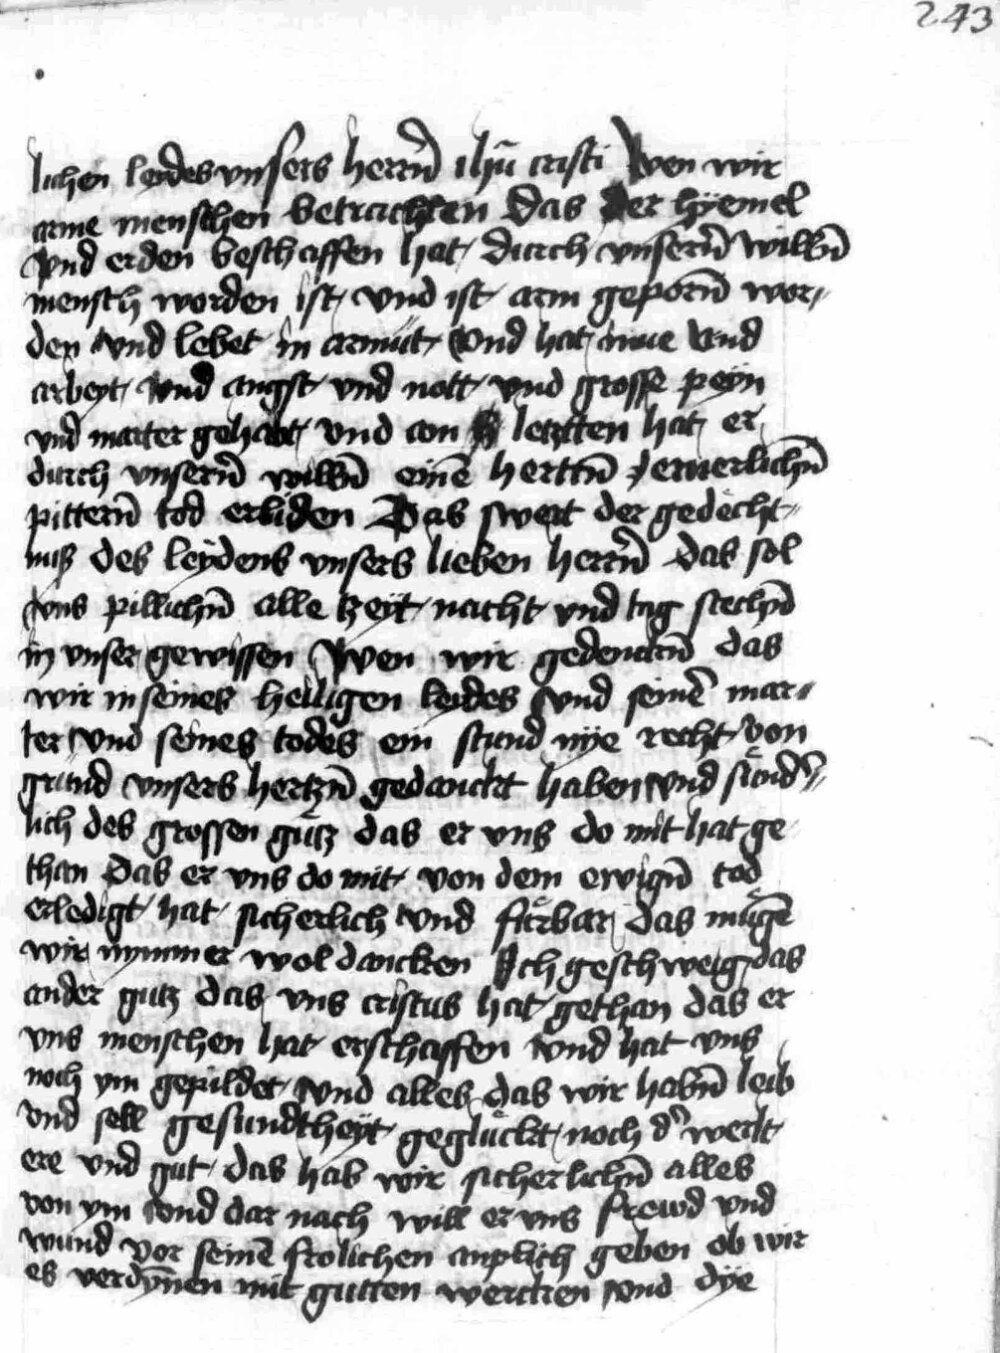 243
lichen leydes vnsers herrn̄ ihū cristi Wen wir
arme menschen betrachten Das der hÿemel
vnd erden beschaffen hat durch vnsern̄ willn̄
mensch worden ist vnd ist arm geporn̄ wor„
den vnd lebet in armüt vnd hat mue vnd
arbeyt vnd angst vnd nott vnd grosse peÿn
vnd marter gehabt vnd am letztten hat er
durch vnsern̄ willn̄ einē hertn̄ iemerlichn̄
pittern̄ tod erliden Das swert der gedecht„
nuß des leÿdens vnsers lieben herrn̄ das sol
vns pillichn̄ alle tzeÿt nacht vnd tag stechn̄
in vnser gewissen Wen wir gedencken̄ das
wir im seines heiligen leydes vnd seinē mar„
ter vnd seines todes ein stund nÿe recht von
grund vnsers hertzn̄ gedanckt haben vnd sůnder„
lich des grossen gůtz das er vns do mit hat ge
than Das er vns do mit von dem ewign̄ tod
erledigt hat sicherlich vnd fůrbar das můgē
wir nymmer wol dancken Ich geschweig das
ander gutz das vns cristus hat gethan das er
vns menschen hat erschaffen vnd hat vns
noch ym gepildet vnd alles das wir habn̄ leib
vnd sell gesundtheÿt geglůckt noch d' werlt
ere vnd gut das hab wir sicherlichn̄ alles
von ym vnd dar nach will er vns frewd vnd
wund vor seinē frolichen anplich geben ob wir
es verdÿnen mit gutten wercken vnd dÿe